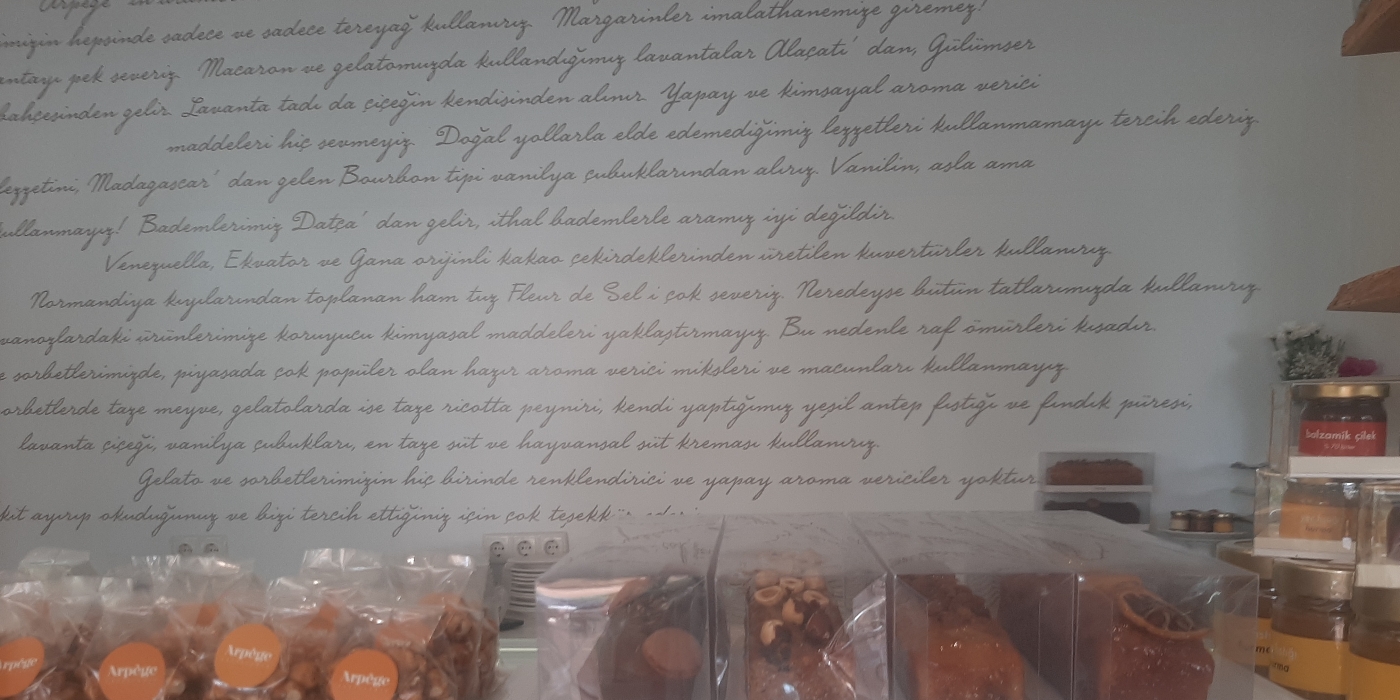 Arpège
imizin hepsinde sadece ve sadece tereyağ kullanırız. Margarinler imalathanemize giremez!
antayı pek severiz. Macaron ve gelatomuzda kullandığımız lavantalar Alaçatı' dan, Gülümser
bahçesinden gelir. Lavanta tadı da çiçeğin kendisinden alınır. Yapay ve kimsayal aroma verici
maddeleri hiç sevmeyiz. Doğal yollarla elde edemediğimiz lezzetleri kullanmamayı tercih ederiz.
lezzetini, Madagascar' dan gelen Bourbon tipi vanilya çubuklarından alırız. Vanilin, asla ama
kullanmayız! Bademlerimiz Datça' dan gelir, ithal bademlerle aramız iyi değildir.
Venezuella, Ekvator ve Gana orijinli kakao çekirdeklerinden üretilen kuvertürler kullanırız.
Normandiya kıyılarından toplanan ham tuz Fleur de Sel i çok severiz. Neredeyse bütün tatlarımızda kullanırız.
vanozlardaki ürünlerimize koruyucu kimyasal maddeleri yaklaştırmayız. Bu nedenle raf ömürleri kısadır.
e sorbetlerimizde, piyasada çok popüler olan hazır aroma verici miksleri ve macunları kullanmayız.
orbetlerde taze meyve, gelatolarda ise taze ricotta peyniri, kendi yaptığımız yeşil antep fıstığı ve fındık püresi,
lavanta çiçeği, vanilya çubukları, en taze süt ve hayvansal süt kreması kullanırız.
Gelato ve sorbetlerimizin hiç birinde renklendirici ve yapay aroma vericiler yoktur.
kit ayırıp okuduğunuz ve bizi tercih ettiğiniz için çok teşekkür ederi
balzamik çilek
Arpège
Arpège
Arpège
Arpège